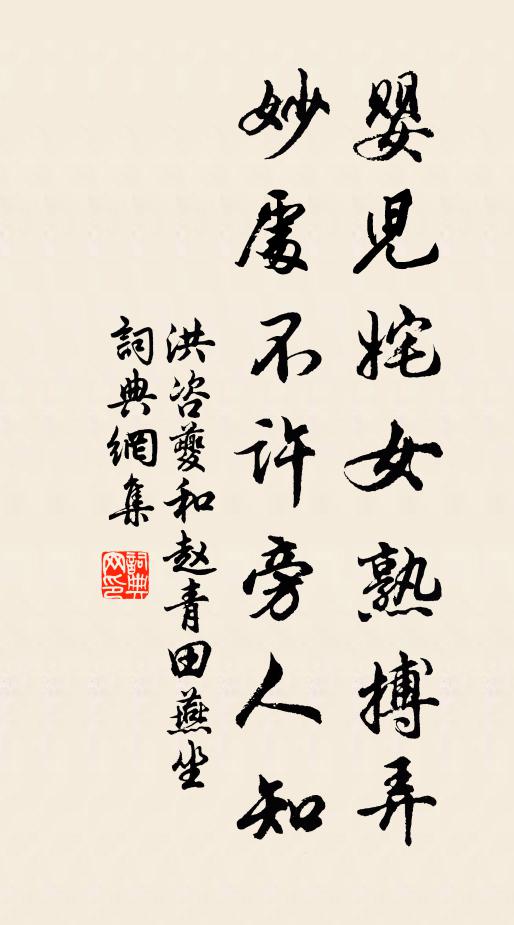 嬰児姹女熟搏弄
妙處不许旁人知
洪咨夔和赵青田燕坐
詞典網集
詞典
网印